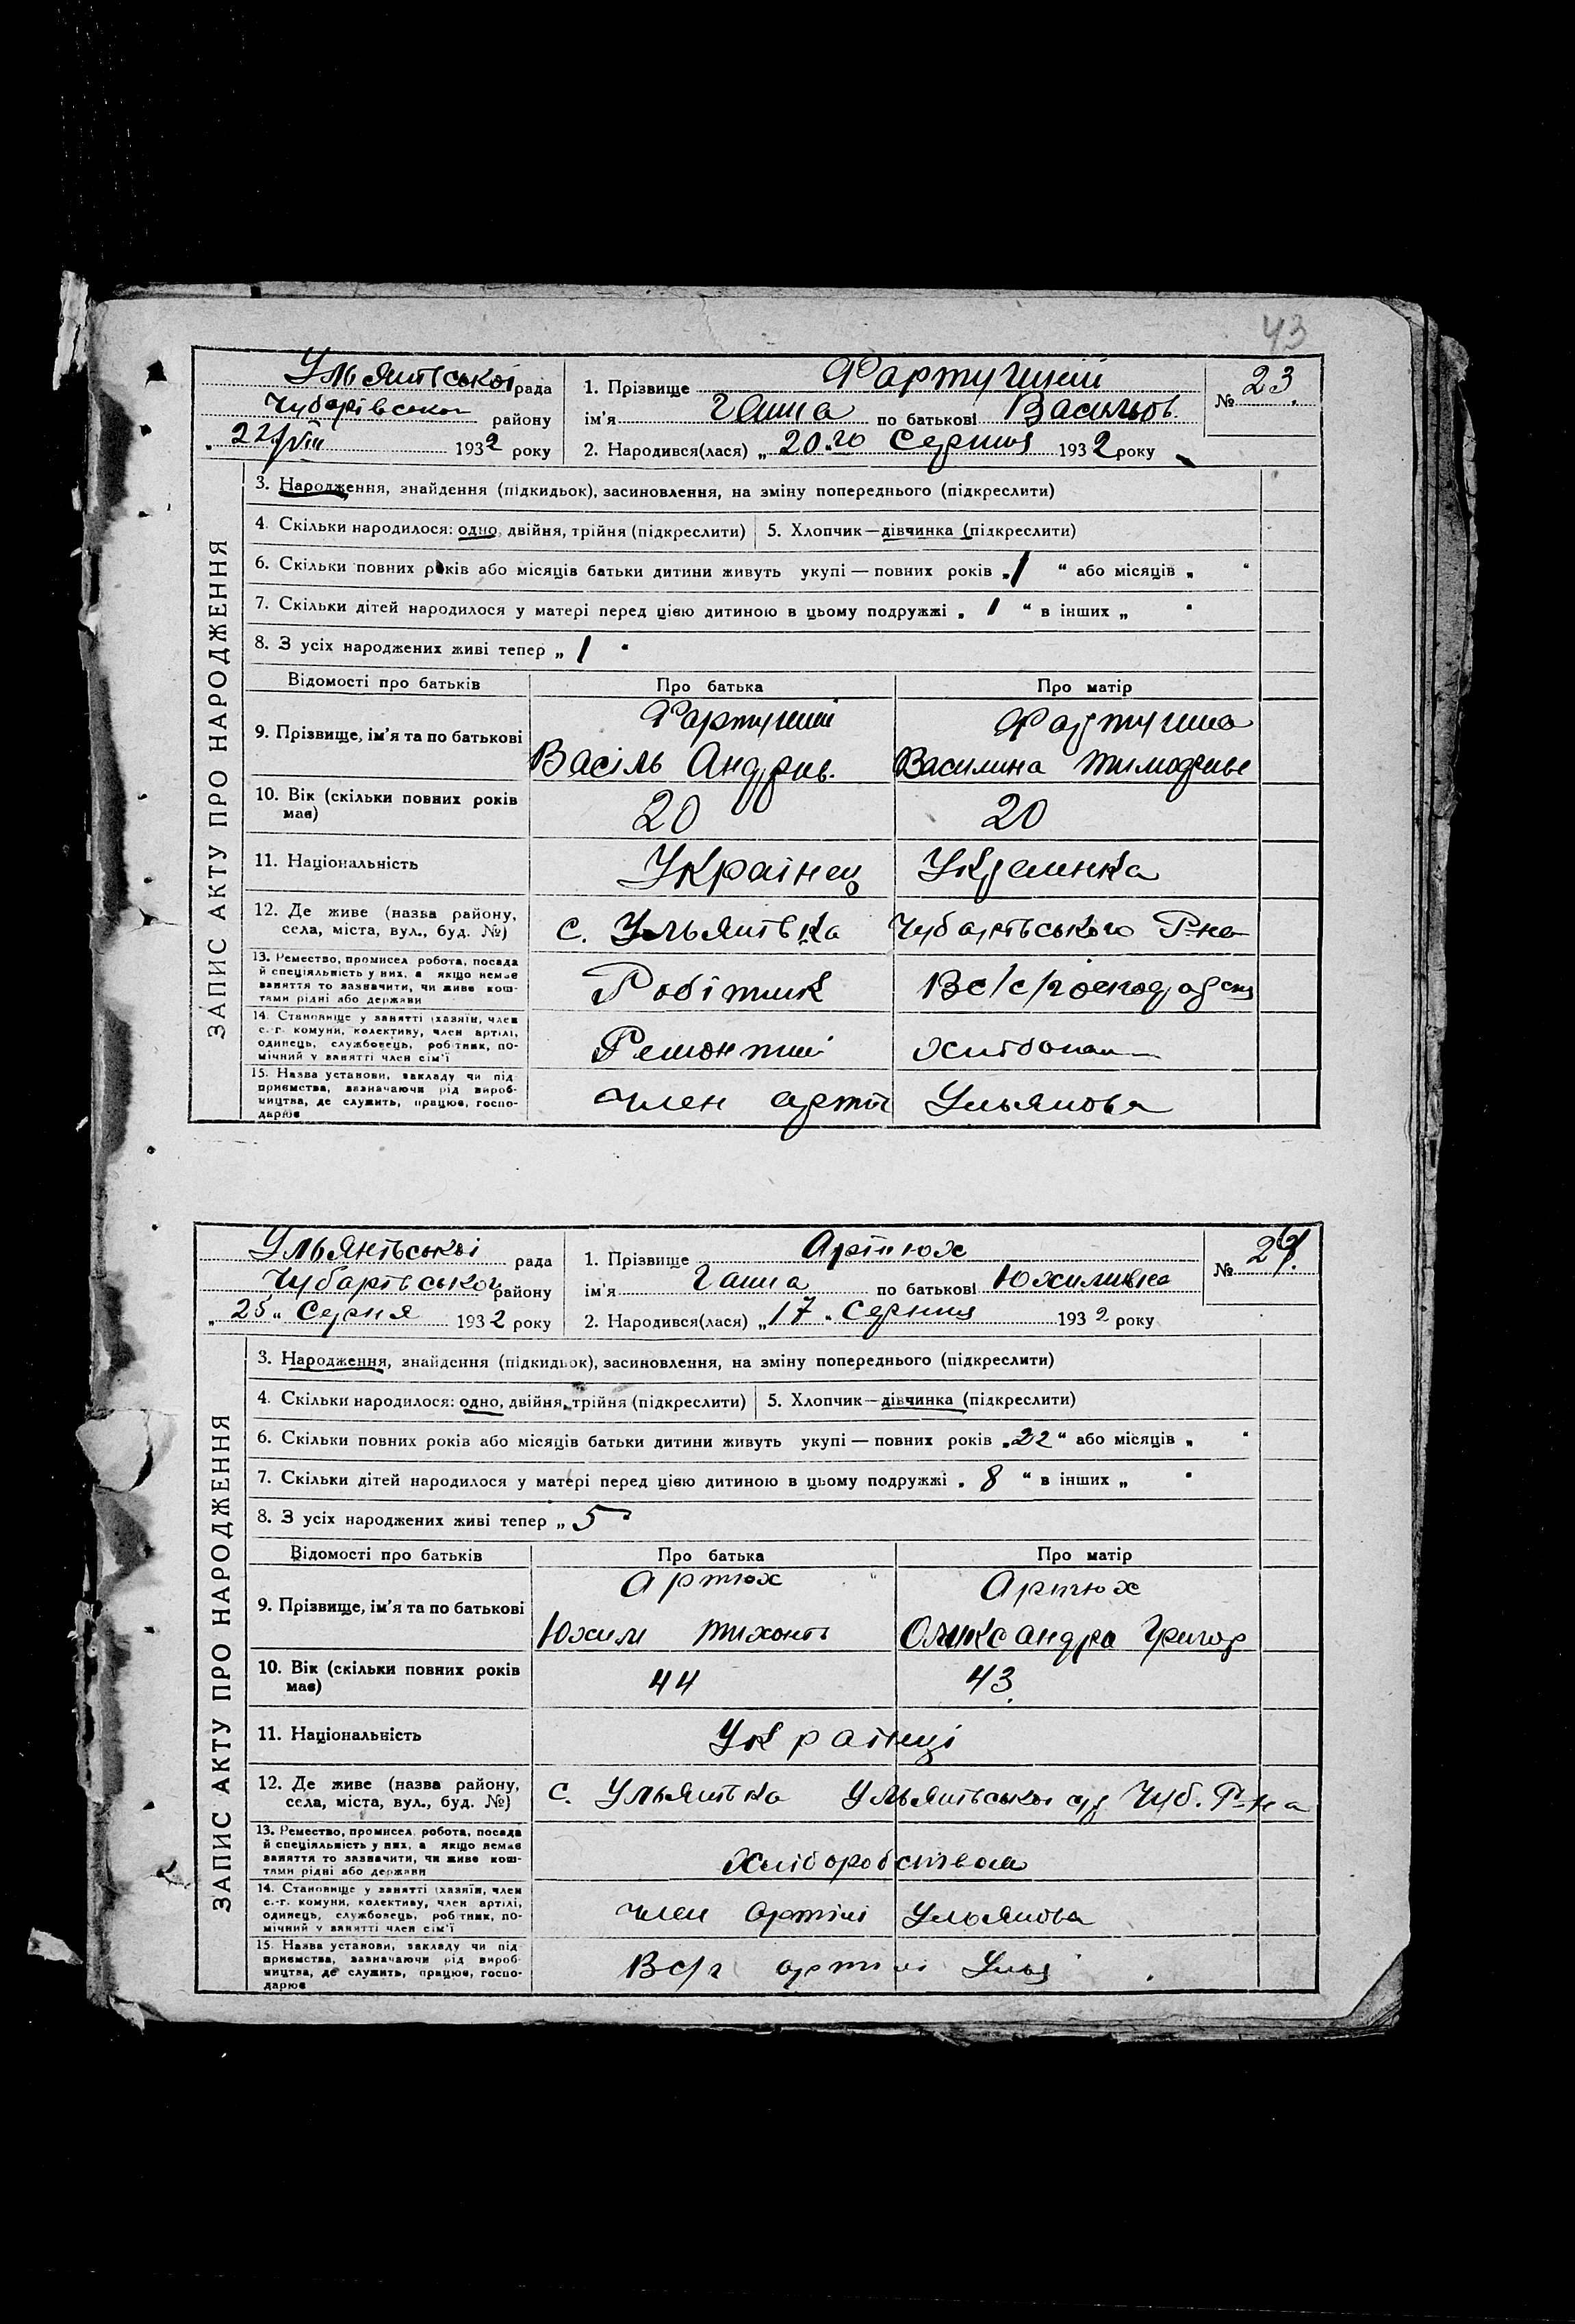 43
Ульянівської рада
Чубарівсько району
„ 22/VIII 1932 року
1. Прізвище
ім'я Ганна по батькові Васильов.
2. Народився(лася) „ 20 го Серпня 1932 року
№ 23.
ЗАПИС АКТУ ПРО НАРОДЖЕННЯ
3. Народження, знайдення (підкидьок), засиновлення, на зміну попереднього (підкреслити)
4. Скільки народилося: одно, двійня, трійня (підкреслити) 5. Хлопчик—дівчинка (підкреслити)
6. Скільки повних років або місяців батьки дитини живуть укупі — повних років „ 1 “ або місяців „ “
7. Скільки дітей народилося у матері перед цією дитиною в цьому подружжі „ 1 “ в інших „ “
8. З усіх народжених живі тепер „ 1 “
Відомості про батьків Про батька Про матір
9. Прізвище, ім'я та по батькові
Васіль Андрив. Василина
10. Вік (скільки повних років має) 20 20
11. Національність Українец Украинка
12. Де живе (назва району, села, міста, вул., буд. №) с. Ульянівка Чубарівського Р-на
13. Ремество, промисел, робота, посада
й спеціяльність у них, а якщо немає
заняття то зазначити, чи живе кош-
тами рідні або держави
Робітник
14. Становище у занятті (хазяїн, член
с.-г. комуни, колективу, член артілі,
одинець, службовець, робітник, по-
мічний у занятті член сім'ї
15. Назва установи, закладу чи під
приємства, зазначаючи рід вироб-
ництва, де служить, працює, госпо-
дарює
член арті Ульянова
Ульянівської рада
Чубарівської району
„ 25 “ Серпня 1932 року
1. Прізвище Артюх
ім'я Ганна по батькові Юхимивна
2. Народився(лася) „ 17 “ Серпня 1932 року
№
ЗАПИС АКТУ ПРО НАРОДЖЕННЯ
3. Народження, знайдення (підкидьок), засиновлення, на зміну попереднього (підкреслити)
4. Скільки народилося: одно, двійня, трійня (підкреслити) 5. Хлопчик—дівчинка (підкреслити)
6. Скільки повних років або місяців батьки дитини живуть укупі — повних років „ 22 “ або місяців „ “
7. Скільки дітей народилося у матері перед цією дитиною в цьому подружжі „ 8 “ в інших „ “
8. З усіх народжених живі тепер „ 5 “
Відомості про батьків Про батька Про матір
Артюх Артюх
9. Прізвище, ім'я та по батькові
Юхим Тихонів Олександра Григор
10. Вік (скільки повних років має) 44 43
11. Національність Українці
12. Де живе (назва району, села, міста, вул., буд. №) с. Ульянівка Ульянівської с/р Чуб. Р-на
13. Ремество, промисел, робота, посада
й спеціяльність у них, а якщо немає
заняття то зазначити, чи живе кош-
тами рідні або держави
Хліборобством
14. Становище у занятті (хазяїн, член
с.-г. комуни, колективу, член артілі,
одинець, службовець, робітник, по-
мічний у занятті член сім'ї
член артілі Ульянова
15. Назва установи, закладу чи під
приємства, зазначаючи рід вироб-
ництва, де служить, працює, госпо-
дарює
В с/г артілі